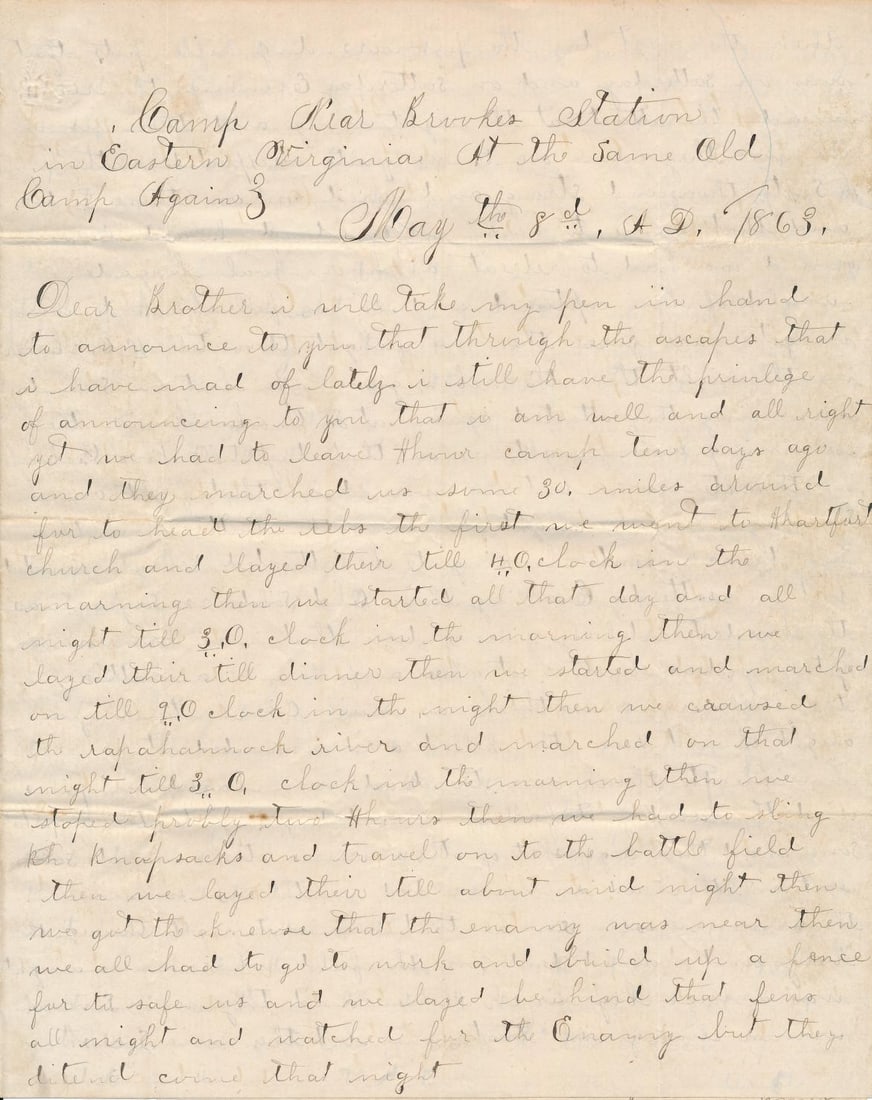 Camp Near Brookes Station
in Eastern Virginia At the Same Old
Camp Again }
May the 8d, A D, 1863,
Dear Brother i will take my pen in hand
to announce to you that through the ascapes that
i have mad of lately i still have the privlege
of announceing to you that i am well and all right
yet we had to leave Hhour camp ten days ago
and they marched us some 30, miles around
fur to head the rebs the first we went to Hhartfort
church and layed their till 4,0, clock in the
marning then we started all that day and all
night till 3,0, clock in th morning then we
layed their till dinner then we started and marched
on till 9,0 clock in th night then we caawsed
th rapahannock river and marched on that
night till 3,0, clock in the morning then we
stoped probly two Hhours then we had to sling
kh knapsacks and travel on to th battle field
then we layed their till about mid night then
we got th knewse that the enamy was near then
we all had to go to work and build up a fence
fur to safe us and we layed be hind that fens
all night and watched fur th Enamy but they
ditend come that night